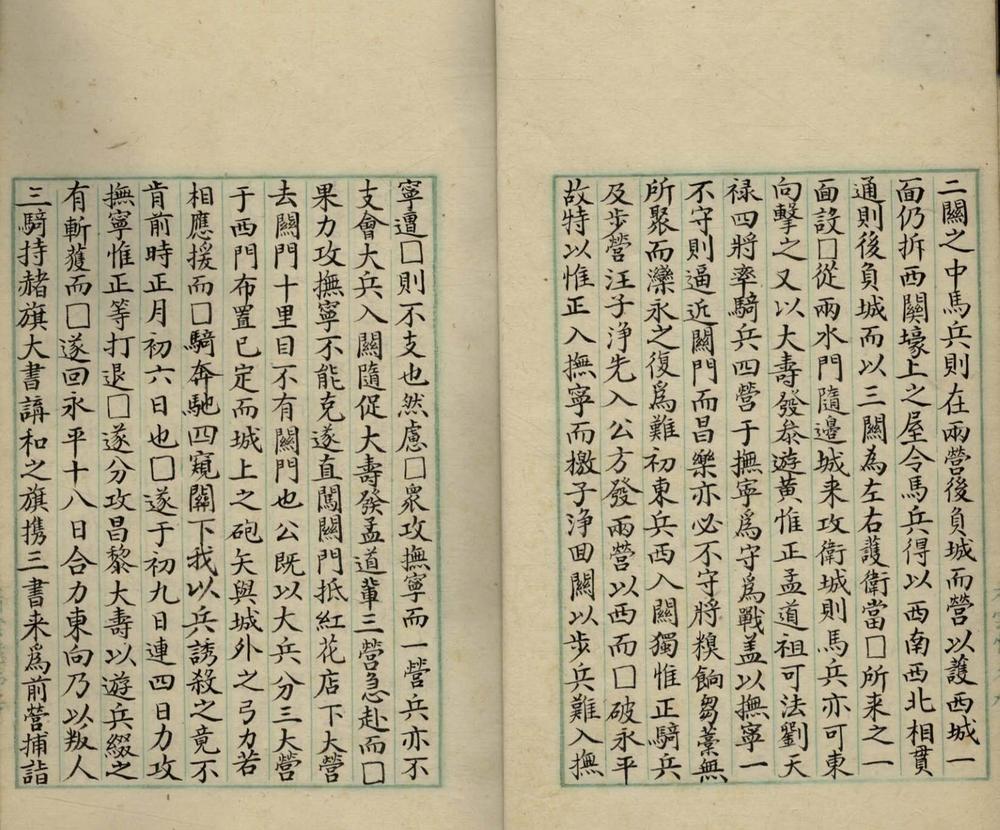 二關之中馬兵則在兩營後負城而營以護西城一
面仍拆西關壕上之屋令馬兵得以西南西北相貫
通則後負城而以三關為左右護衛當□所来之一
面設□從兩水門隨邊城来攻衛城則馬兵亦可東
向擊之又以大壽發叅遊黄惟正孟道祖可法劉天
禄四將率騎兵四營于撫寧爲守爲戰盖以撫寧一
不守則逼近關門而昌樂亦必不守將糗餉芻藁無
所聚而灤永之復爲難初東兵西入關獨惟正騎兵
及步營汪子浄先入公方發兩營以西而□破永平
故特以惟正入撫寧而檄子浄回關以步兵難入撫
寧遭□則不支也然慮□衆攻撫寧而一營兵亦不
支會大兵入關隨促大壽發孟道輩三營急赴而□
果力攻撫寧不能克遂直闖關門抵紅花店下大營
去關門十里目不有關門也公既以大兵分三大營
于西門布置已定而城上之砲矢與城外之弓力若
相應援而□騎奔馳四窺關下我以兵誘殺之竟不
肯前時正月初六日也□遂于初九日連四日力攻
撫寧惟正等打退□遂分攻昌黎大壽以遊兵綴之
有斬獲而□遂回永平十八日合力東向乃以叛人
三騎持赭旗大書講和之旗携三書来爲前營捕詣